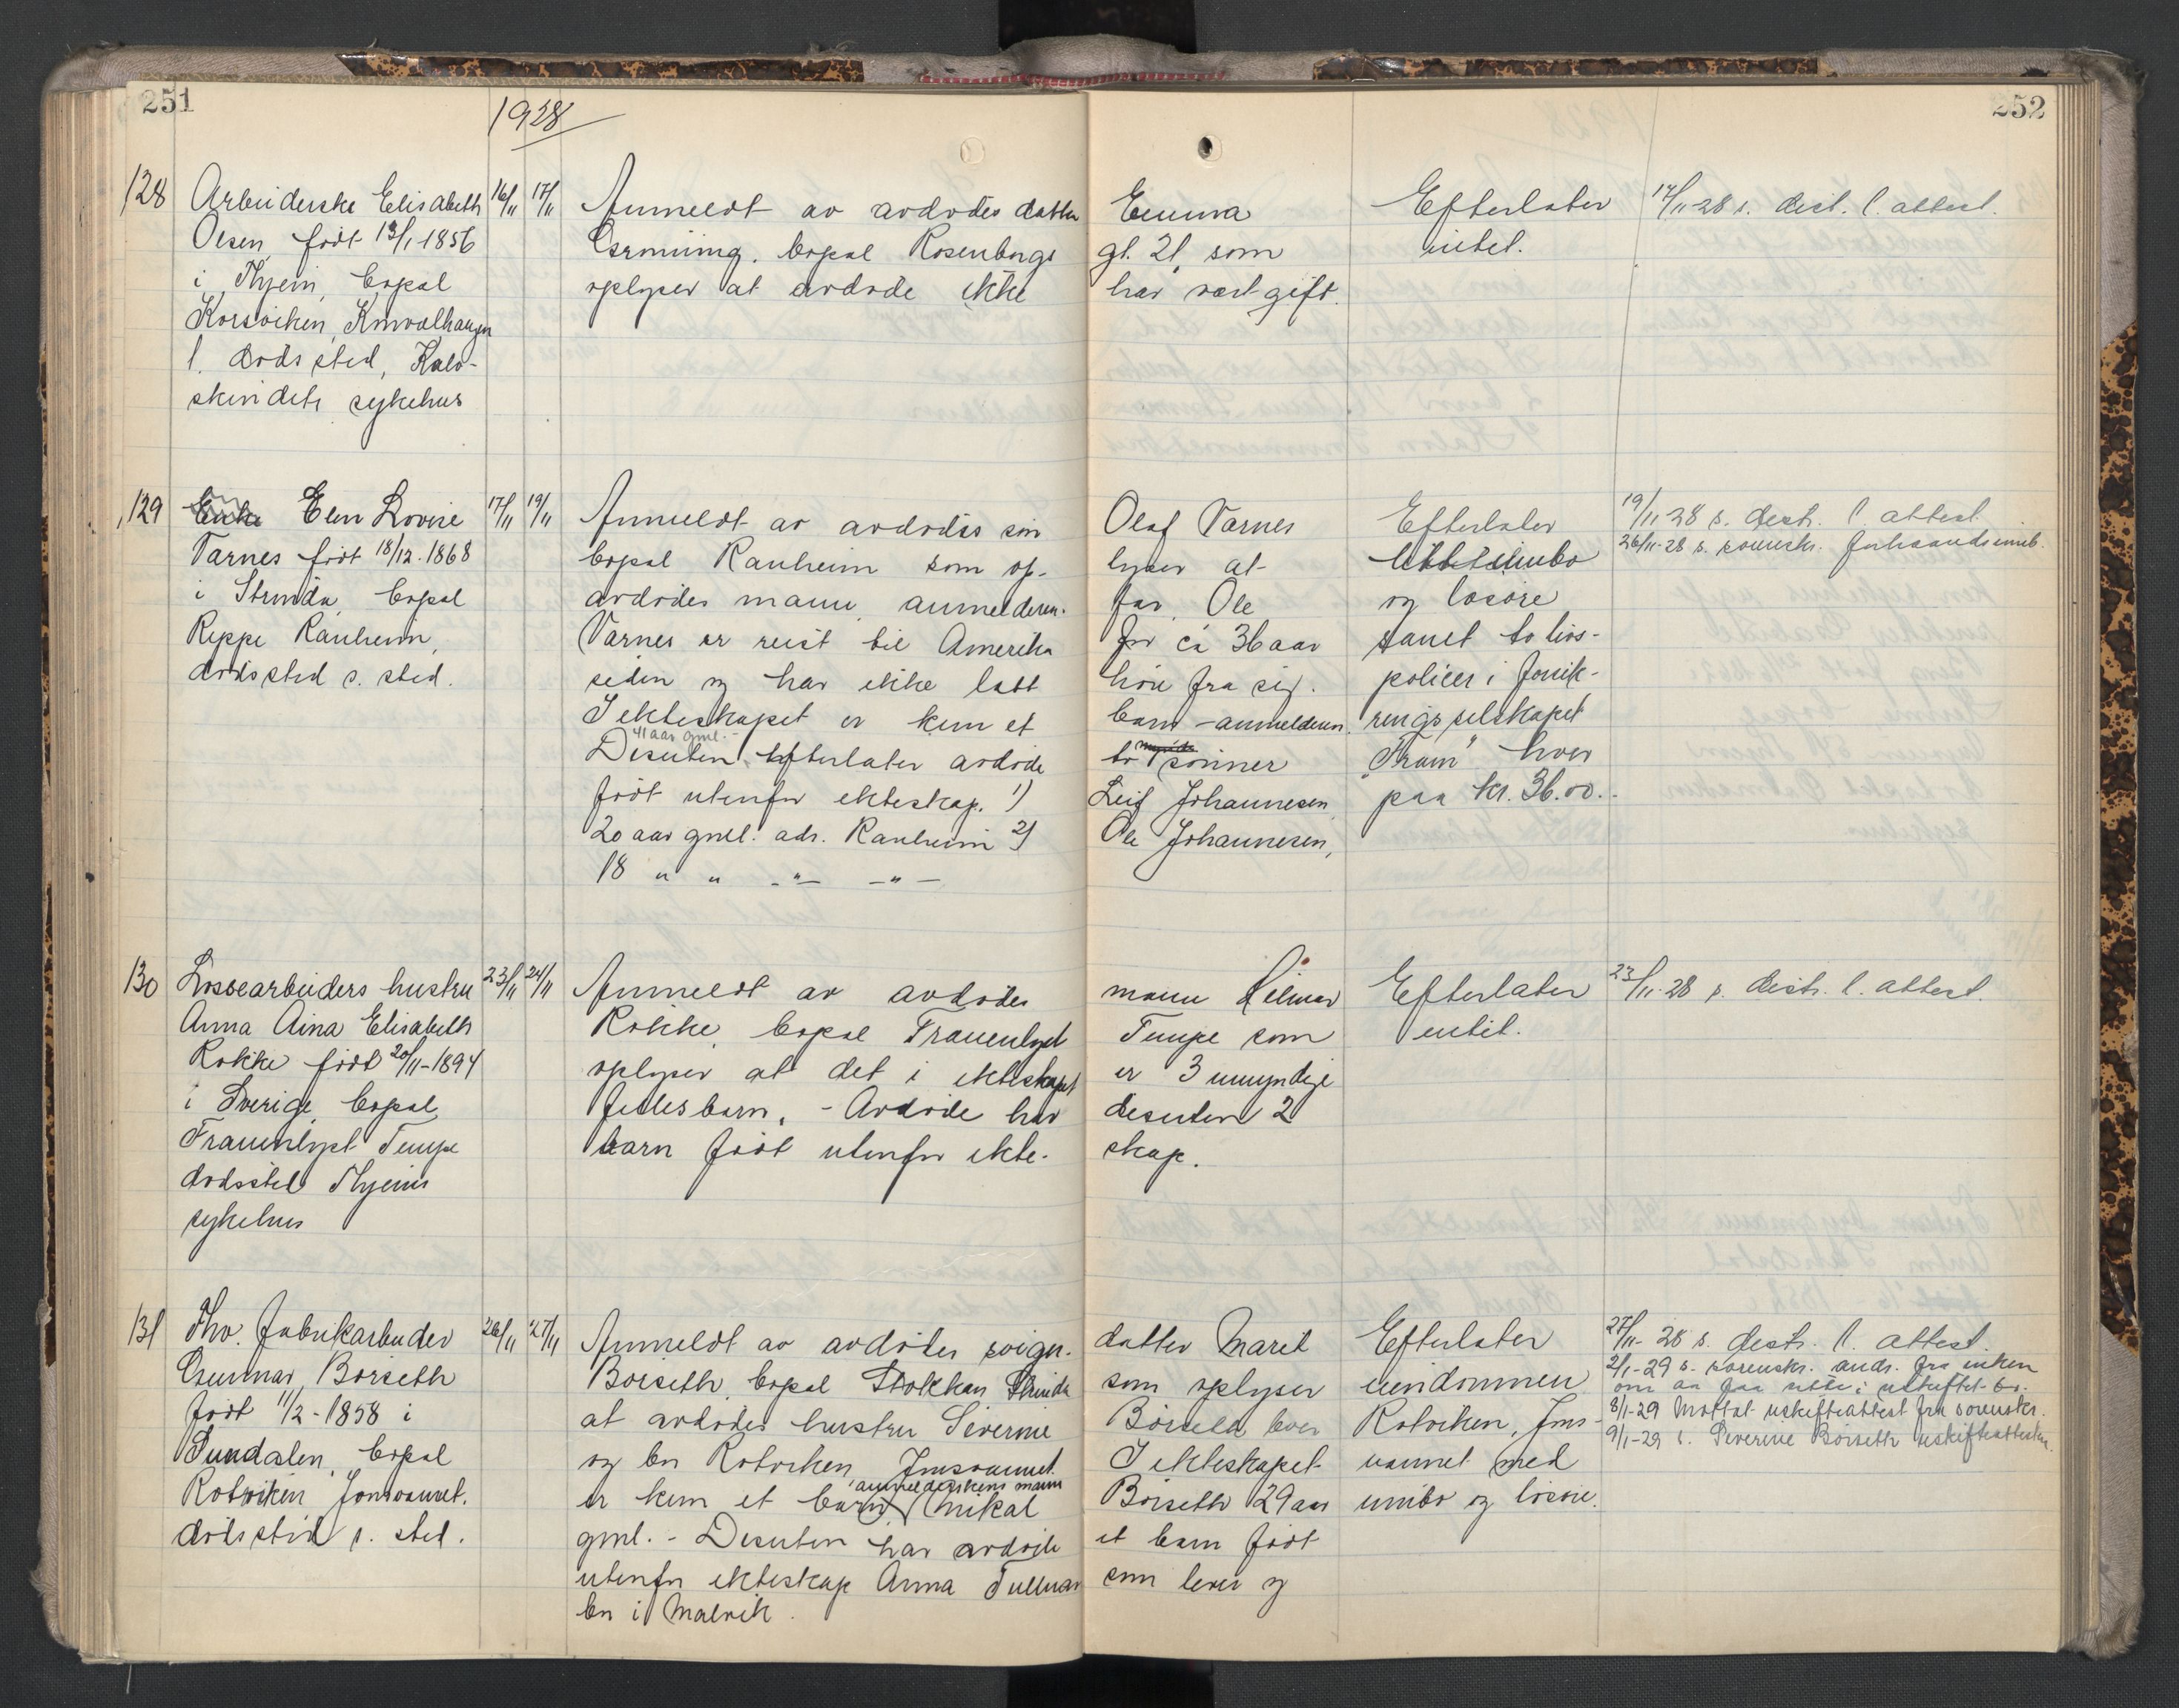 251
1928
252
128
Arbeiderske Elisabeth
Olsen, født 13/1 1856
i Thjem, bopæl
Korsviken,
l. dødssted, Kalv-
skindets sykehus
16/11
17/11
Anmeldt av avdødes datter Emma
Grønning, bopæl Rosenborgs gt. 21, som
oplyser at avdøde ikke har vært gift.
Efterlater
intet.
17/11-28 s. dist. l. attest.
129
Enke Elen Lovise
Varnes født 18/12.1868
i Strinda, bopæl
Reppe Ranheim,
dødssted s. sted.
17/11
19/11
Anmeldt av avdødes søn Olaf Varnes
bopæl Ranheim som op- lyser at
avdødes mann, anmelderen. far, Ole
Varnes er reist til Amerika for ca 36 aar
siden og har ikke latt høre fra sig.
I ekteskapet er kun et barn - anmelderen.
41 aar gml. -
Desuten efterlater avdøde to sønner
født utenfor ekteskap. 1) Leif Johannesen,
20 aar gml. adr. Ranheim 2) Ole Johannesen,
18 " " -"- -"-
Efterlater
litt innbo
og løsøre
samt to livs-
policer i forsik-
ringsselskapet
"Fram" hver
paa kr. 36.00.
19/11 28 s. distr. l. attest.
26/11-28 s. sorenskr.
130
Lossearbeiders hustru
Anna Aina Elisabeth
Rokke født 20/11-1894
i Sverige, bopæl
Frauenlyst Tempe
dødssted Thjems
sykehus
23/11
24/11
Anmeldt av avdødes mann Hilmar
Rokke, bopæl Frauenlyst Tempe som
oplyser at det i ekteskapet er 3 umyndige
fellesbarn, - Avdøde har desuten 2
barn født utenfor ekte- skap.
Efterlater
intet.
23/11-28 s. distr. l. attest.
131
Fhv. fabrikarbeider
Gunnar Børseth
født 11/2-1858 i
Sundalen, bopæl
Rotvikken Jonsvannet.
dødssted s. sted.
26/11
27/11
Anmeldt av avdødes sviger- datter Marit
Børseth, bopæl Stokkan Strinda som oplyser
at avdødes hustru Severine Børseth bor
og bor Rotvikken, Jonsvannet. I ekteskapet
anmelderskens mann
er kun et barn, Mikal Børseth 29 aar
gml. - Desuten har avdøde et barn født
utenfor ekteskap Anna Tullnær som lever og
bor i Malvik.
Efterlater
eiendommen
Rotvikken, Jons-
vannet med
innbo og løsøre.
27/11-28 s. distr. l. attest.
2/1-29 s. sorenskr. ands. fra enken
om aa faa sitte i uskiftet bo.
8/1-29 Mottat uskifteattest fra sorenskr.
9/1-29 s. Severine Børseth uskifteattesten.